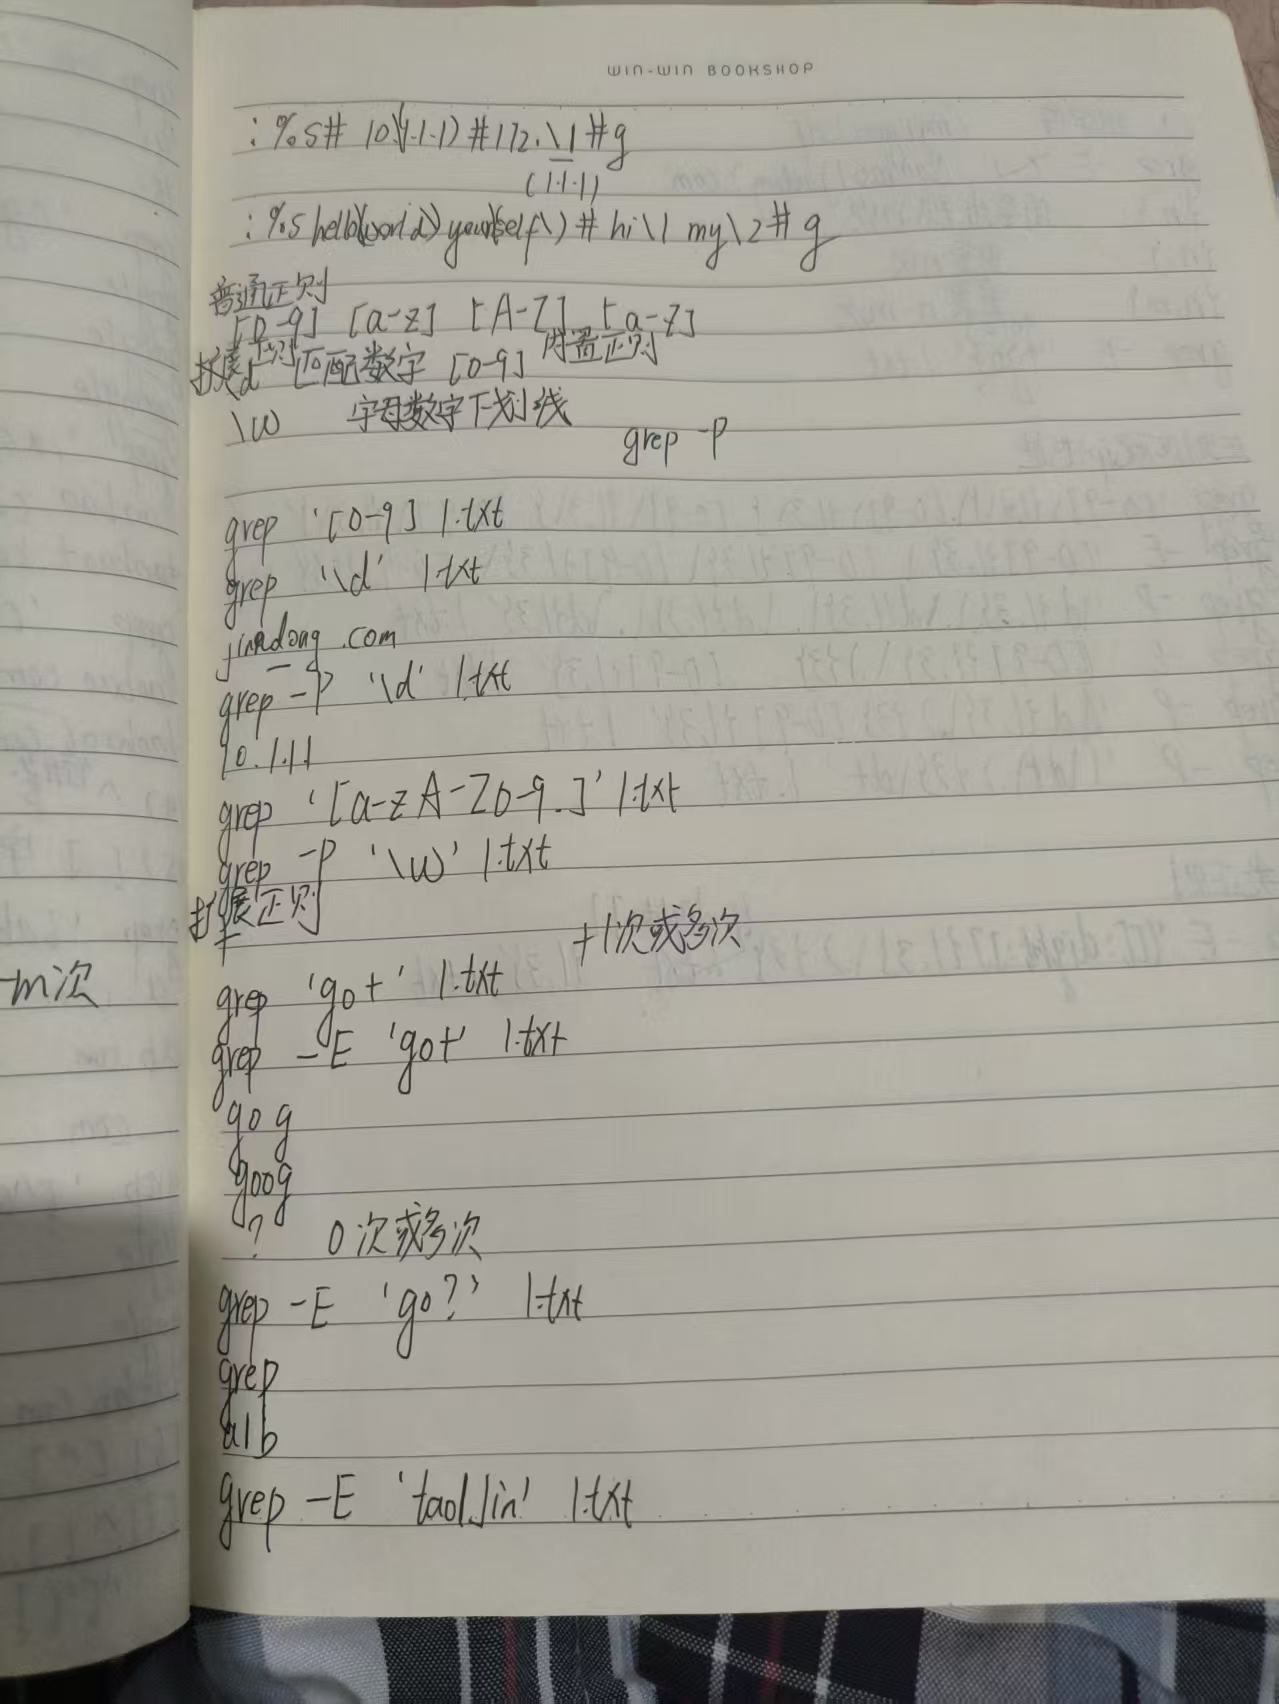 WIN-WIN BOOKSHOP
:%s# 10.\(1.1.1\) #172.\1#g
(1.1.1)
:%s hello\(world\) your\(self\) # hi\1 my\2# g
普通正则
[0-9] [a-z] [A-Z] [a-Z]
扩展正则 内置正则
\d 匹配数字 [0-9]
\w 字母数字下划线
grep -P
grep '[0-9] 1.txt
grep '\d' 1.txt
jingdong.com
grep -P '\d' 1.txt
10.1.1.1
grep '[a-zA-Z0-9.]' 1.txt
grep -P '\w' 1.txt
扩展正则
+ +1次或多次
-m次
grep 'go+' 1.txt
grep -E 'go+' 1.txt
gog
goog
? 0次或多次
grep -E 'go?' 1.txt
grep
a|b
grep -E 'tao|Jin' 1.txt